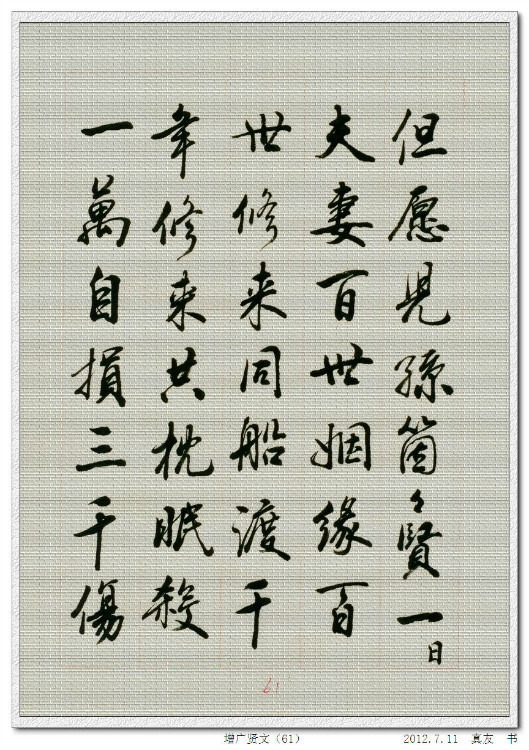 但愿兒孫箇々賢一日
夫妻百世姻緣百
世修来同船渡千
年修来共枕眠殺
一萬自損三千傷
61
增广贤文（61）
2012.7.11 真友 书